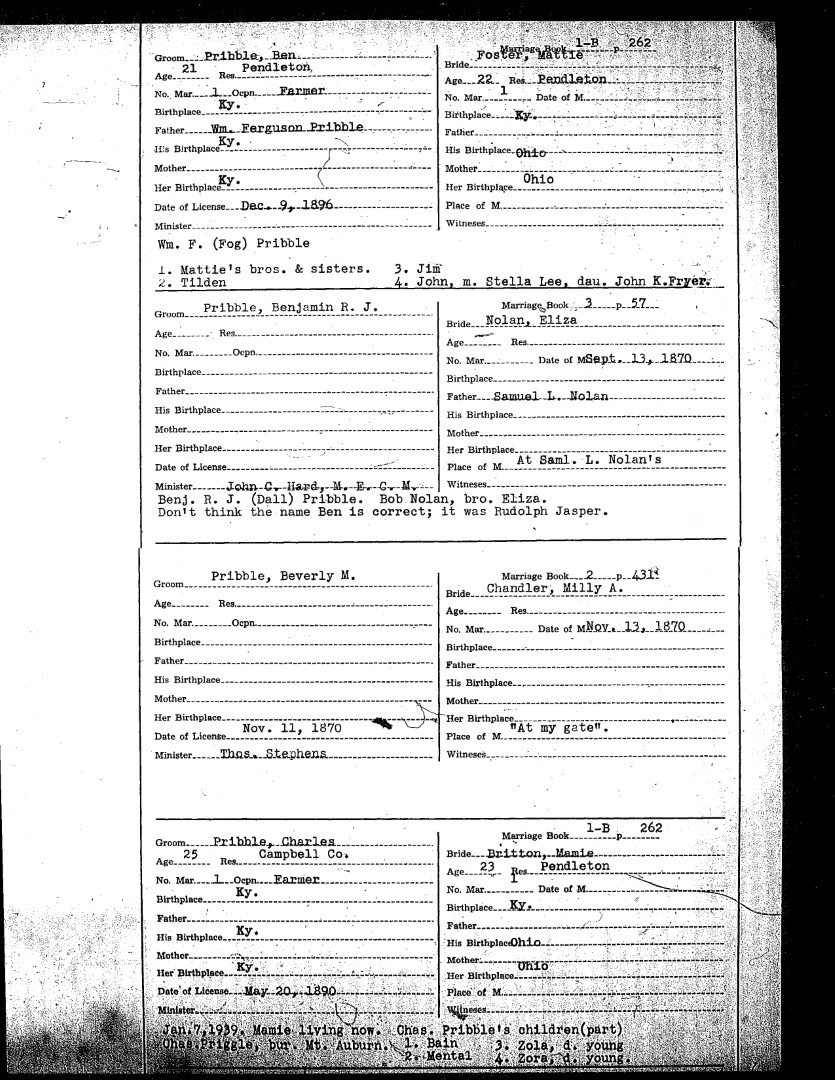 Groom Pribble, Ben
Age 21 Res. Pendleton
No. Mar. 1 Ocpn. Farmer
Birthplace Ky.
Father Wm. Ferguson Pribble
His Birthplace Ky.
Mother
Her Birthplace Ky.
Date of License Dec. 9, 1896
Minister
Marriage Book 1-B p. 262
Bride Foster, Mattie
Age 22 Res. Pendleton
No. Mar. 1 Date of M.
Birthplace Ky.
Father
His Birthplace Ohio
Mother
Her Birthplace Ohio
Place of M.
Witnesses
Wm. F. (Fog) Pribble
1. Mattie's bros. & sisters. 3. Jim
2. Tilden 4. John, m. Stella Lee, dau. John K.Fryer.
Groom Pribble, Benjamin R. J.
Age Res.
No. Mar. Ocpn.
Birthplace
Father
His Birthplace
Mother
Her Birthplace
Date of License
Minister John C. Hard, M. E. C. M.
Marriage Book 3 p. 57
Bride Nolan, Eliza
Age Res.
No. Mar. Date of M. Sept. 13, 1870
Birthplace
Father Samuel L. Nolan
His Birthplace
Mother
Her Birthplace
Place of M. At Saml. L. Nolan's
Witnesses
Benj. R. J. (Dall) Pribble. Bob Nolan, bro. Eliza.
Don't think the name Ben is correct; it was Rudolph Jasper.
Groom Pribble, Beverly M.
Age Res.
No. Mar. Ocpn.
Birthplace
Father
His Birthplace
Mother
Her Birthplace
Date of License Nov. 11, 1870
Minister Thos. Stephens
Marriage Book 2 p. 431
Bride Chandler, Milly A.
Age Res.
No. Mar. Date of M. Nov. 13, 1870
Birthplace
Father
His Birthplace
Mother
Her Birthplace
Place of M. "At my gate".
Witnesses
Groom Pribble, Charles
Age 25 Res. Campbell Co.
No. Mar. 1 Ocpn. Farmer
Birthplace Ky.
Father
His Birthplace Ky.
Mother
Her Birthplace Ky.
Date of License May 20, 1890
Minister
Marriage Book 1-B p. 262
Bride Britton, Mamie
Age 23 Res. Pendleton
No. Mar. 1 Date of M.
Birthplace Ky.
Father
His Birthplace Ohio
Mother
Her Birthplace Ohio
Place of M.
Witnesses
Jan.7,1939. Mamie living now. Chas. Pribble's children(part)
Chas.Priggle, bur. Mt. Auburn. 1. Bain 3. Zola, d. young
2. Mental 4. Zora, d. young.